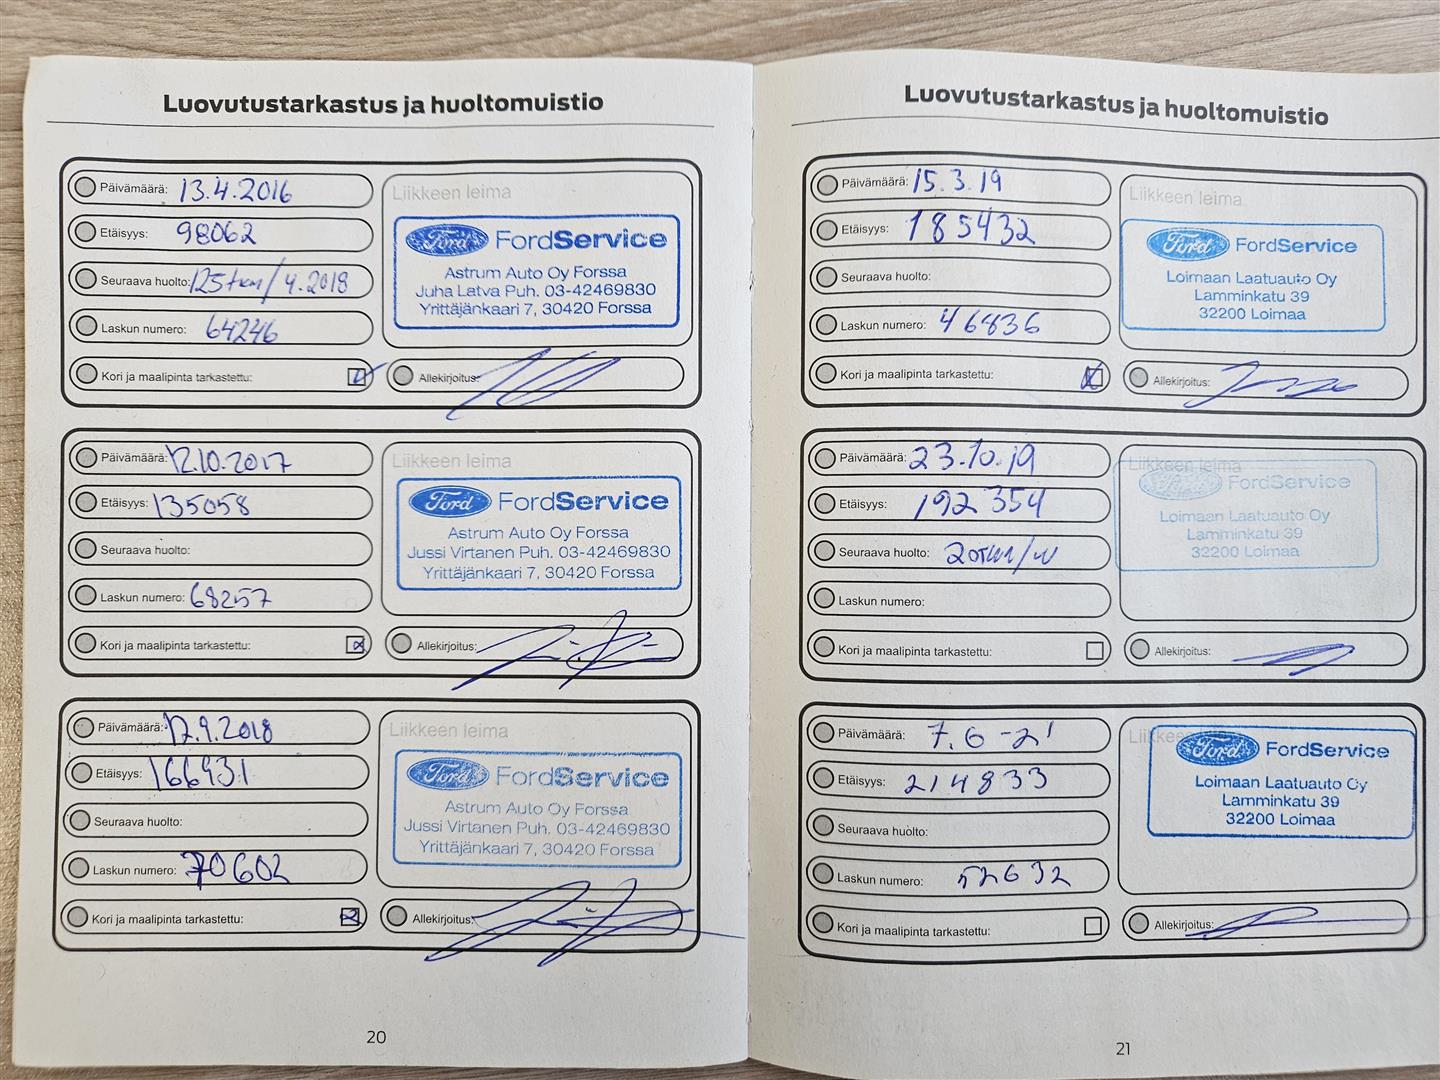 Luovutustarkastus ja huoltomuistio
Päivämäärä: 13.4.2016
Etäisyys: 98062
Seuraava huolto: 125tkm/4.2018
Laskun numero: 64246
Kori ja maalipinta tarkastettu:
Liikkeen leima
Ford FordService
Astrum Auto Oy Forssa
Juha Latva Puh. 03-42469830
Yrittäjänkaari 7, 30420 Forssa
Allekirjoitus:
Päivämäärä: 12.10.2017
Etäisyys: 135058
Seuraava huolto:
Laskun numero: 68257
Kori ja maalipinta tarkastettu:
Liikkeen leima
Ford FordService
Astrum Auto Oy Forssa
Jussi Virtanen Puh. 03-42469830
Yrittäjänkaari 7, 30420 Forssa
Allekirjoitus:
Päivämäärä: 12.9.2018
Etäisyys: 166931
Seuraava huolto:
Laskun numero: 70602
Kori ja maalipinta tarkastettu:
Liikkeen leima
Ford FordService
Astrum Auto Oy Forssa
Jussi Virtanen Puh. 03-42469830
Yrittäjänkaari 7, 30420 Forssa
Allekirjoitus:
20
Luovutustarkastus ja huoltomuistio
Päivämäärä: 15.3.19
Etäisyys: 185432
Seuraava huolto:
Laskun numero: 46836
Kori ja maalipinta tarkastettu:
Liikkeen leima
Ford FordService
Loimaan Laatuauto Oy
Lamminkatu 39
32200 Loimaa
Allekirjoitus:
Päivämäärä: 23.10.19
Etäisyys: 192354
Seuraava huolto:
Laskun numero:
Kori ja maalipinta tarkastettu:
Liikkeen leima
Ford FordService
Loimaan Laatuauto Oy
Lamminkatu 39
32200 Loimaa
Allekirjoitus:
Päivämäärä: 7.6-21
Etäisyys: 214833
Seuraava huolto:
Laskun numero: 52632
Kori ja maalipinta tarkastettu:
Ford FordService
Loimaan Laatuauto Oy
Lamminkatu 39
32200 Loimaa
Allekirjoitus:
21